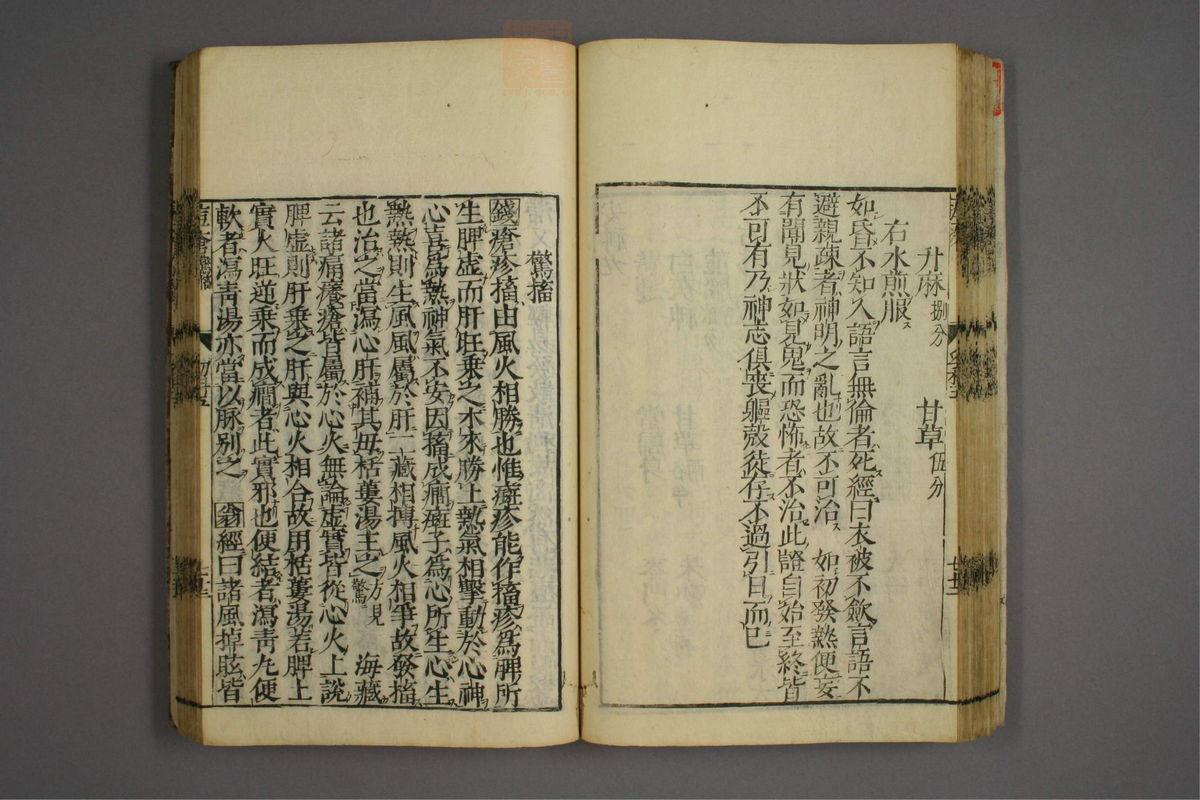 升麻捌分　甘草伍分
右水煎服ス
如昏不知人語言無倫者死經曰衣被不斂言語不
避親疎者神明之亂也故不可治　如初發熱便妄
有聞見狀如見鬼而恐怖者不治此證自始至終皆
不可有乃神志俱喪軀殼徒存不過引日而已
驚搐
錢瘡疹搐由風火相勝也惟瘢疹能作搐疹為脾所
生脾虛而肝旺乘之木來勝土熱氣相擊動於心神
心喜為熱神氣不安因搐成癇瘢子為心所生心生
熱熱則生風風屬於肝二藏相搏風火相爭故發搐
也治之當瀉心肝補其母栝蔞湯主之方見驚　海藏
云諸痛癢瘡皆屬於心火無論虛實皆從心火上說
脾虛則肝乘之肝與心火相合故用栝蔞湯若脾土
實火旺逆乘而成癇者此實邪也便結者瀉青丸便
軟者瀉青湯亦當以脉別之　翁經曰諸風掉眩皆
痘瘡
廿三